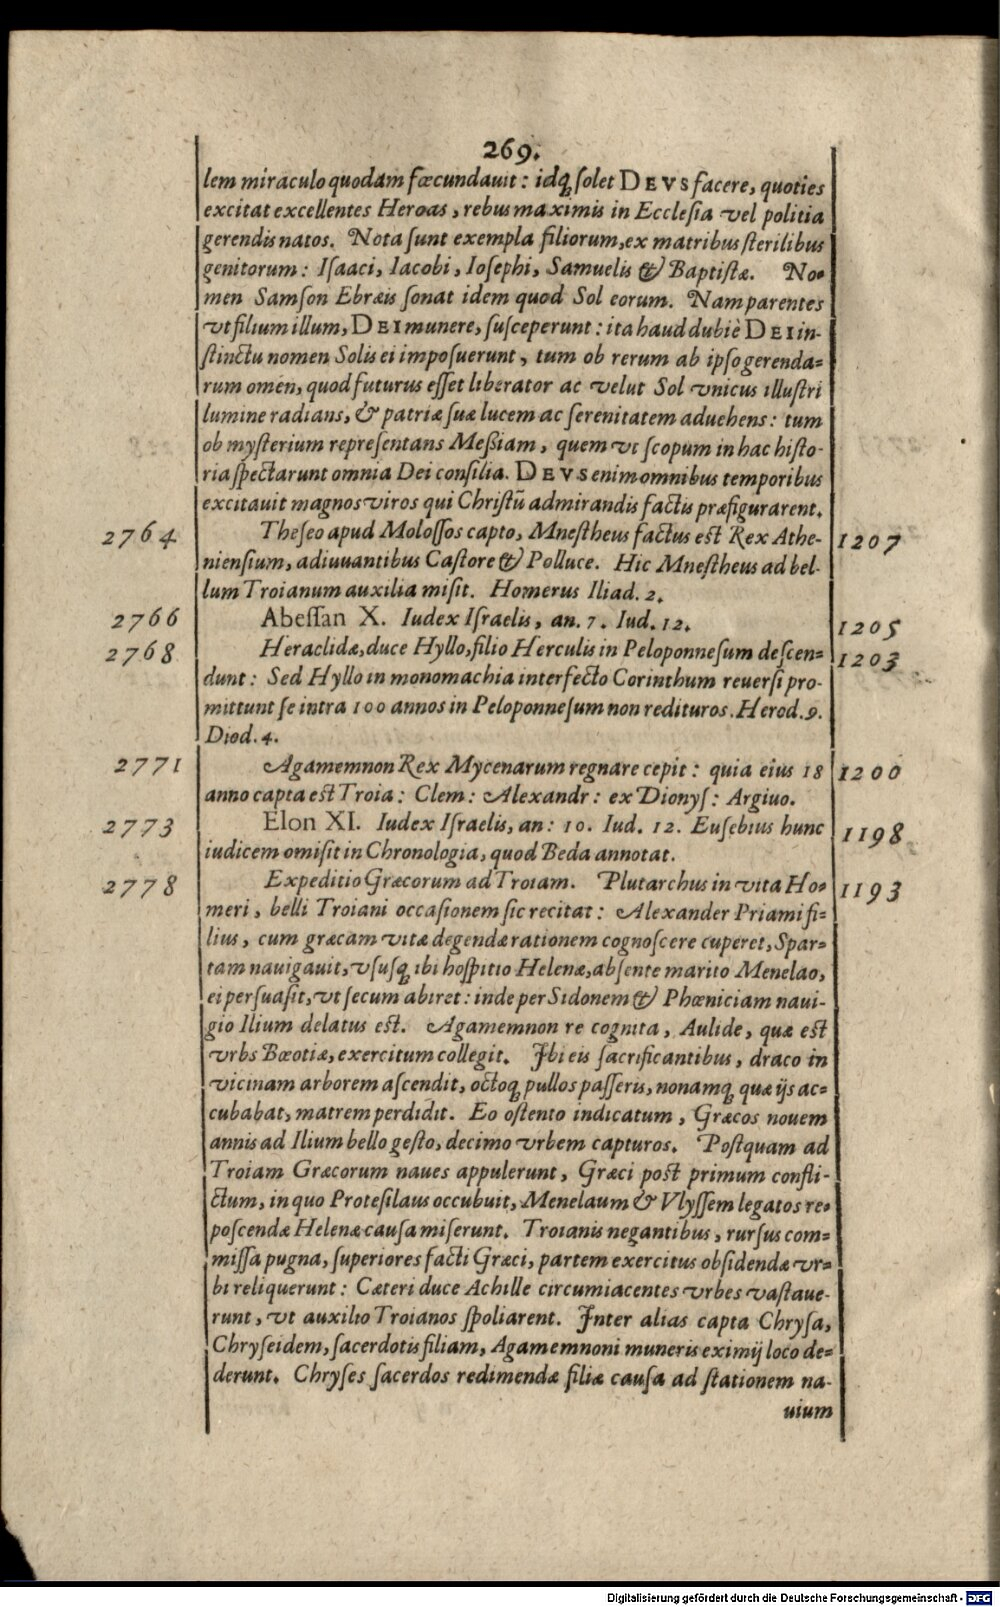 269.
lem miraculo quodam fœcundauit: idq́; ſolet DEVS facere, quoties
excitat excellentes Heroas, rebus maximis in Eccleſia vel politia
gerendis natos. Nota ſunt exempla filiorum, ex matribus ſterilibus
genitorum: Iſaaci, Iacobi, Ioſephi, Samuelis & Baptiſtæ. No-
men Samſon Ebræis ſonat idem quod Sol eorum. Nam parentes
vt filium illum, DEI munere, ſuſceperunt: ita haud dubiè DEI in-
ſtinctu nomen Solis ei impoſuerunt, tum ob rerum ab ipſo gerenda-
rum omen, quod futurus eſſet liberator ac velut Sol vnicus illuſtri
lumine radians, & patriæ ſuæ lucem ac ſerenitatem aduehens: tum
ob myſterium repreſentans Meßiam, quem vt ſcopum in hac hiſto-
ria ſpectarunt omnia Dei conſilia. DEVS enim omnibus temporibus
excitauit magnos viros qui Chriſtũ admirandis factis præfigurarent.
2764 Theſeo apud Moloſſos capto, Mneſtheus factus eſt Rex Athe- 1207
nienſium, adiuuantibus Caſtore & Polluce. Hic Mneſtheus ad bel-
lum Troianum auxilia miſit. Homerus Iliad. 2.
2766 Abeſſan X. Iudex Iſraelis, an. 7. Iud. 12. 1205
2768 Heraclidæ, duce Hyllo, filio Herculis in Peloponneſum deſcen- 1203
dunt: Sed Hyllo in monomachia interfecto Corinthum reuerſi pro-
mittunt ſe intra 100 annos in Peloponneſum non redituros. Herod. 9.
Diod. 4.
2771 Agamemnon Rex Mycenarum regnare cepit: quia eius 18 1200
anno capta eſt Troia: Clem: Alexandr: ex Dionyſ: Argiuo.
2773 Elon XI. Iudex Iſraelis, an: 10. Iud. 12. Euſebius hunc 1198
iudicem omiſit in Chronologia, quod Beda annotat.
2778 Expeditio Græcorum ad Troiam. Plutarchus in vita Ho- 1193
meri, belli Troiani occaſionem ſic recitat: Alexander Priami fi-
lius, cum græcam vitæ degendæ rationem cognoſcere cuperet, Spar-
tam nauigauit, vſuſq́; ibi hoſpitio Helenæ, abſente marito Menelao,
ei perſuaſit, vt ſecum abiret: inde per Sidonem & Phœniciam naui-
gio Ilium delatus eſt. Agamemnon re cognita, Aulide, quæ eſt
vrbs Bœotiæ, exercitum collegit. Ibi eis ſacrificantibus, draco in
vicinam arborem aſcendit, octoq́; pullos paſſeris, nonamq́; quæ ijs ac-
cubabat, matrem perdidit. Eo oſtento indicatum, Græcos nouem
annis ad Ilium bello geſto, decimo vrbem capturos. Poſtquam ad
Troiam Græcorum naues appulerunt, Græci poſt primum confli-
ctum, in quo Proteſilaus occubuit, Menelaum & Vlyſſem legatos re-
poſcendæ Helenæ cauſa miſerunt. Troianis negantibus, rurſus com-
miſſa pugna, ſuperiores facti Græci, partem exercitus obſidendæ vr-
bi reliquerunt: Cæteri duce Achille circumiacentes vrbes vaſtaue-
runt, vt auxilio Troianos ſpoliarent. Inter alias capta Chryſa,
Chryſeidem, ſacerdotis filiam, Agamemnoni muneris eximij loco de-
derunt. Chryſes ſacerdos redimendæ filiæ cauſa ad ſtationem na-
uium
Digitalisierung gefördert durch die Deutsche Forschungsgemeinschaft - DFG